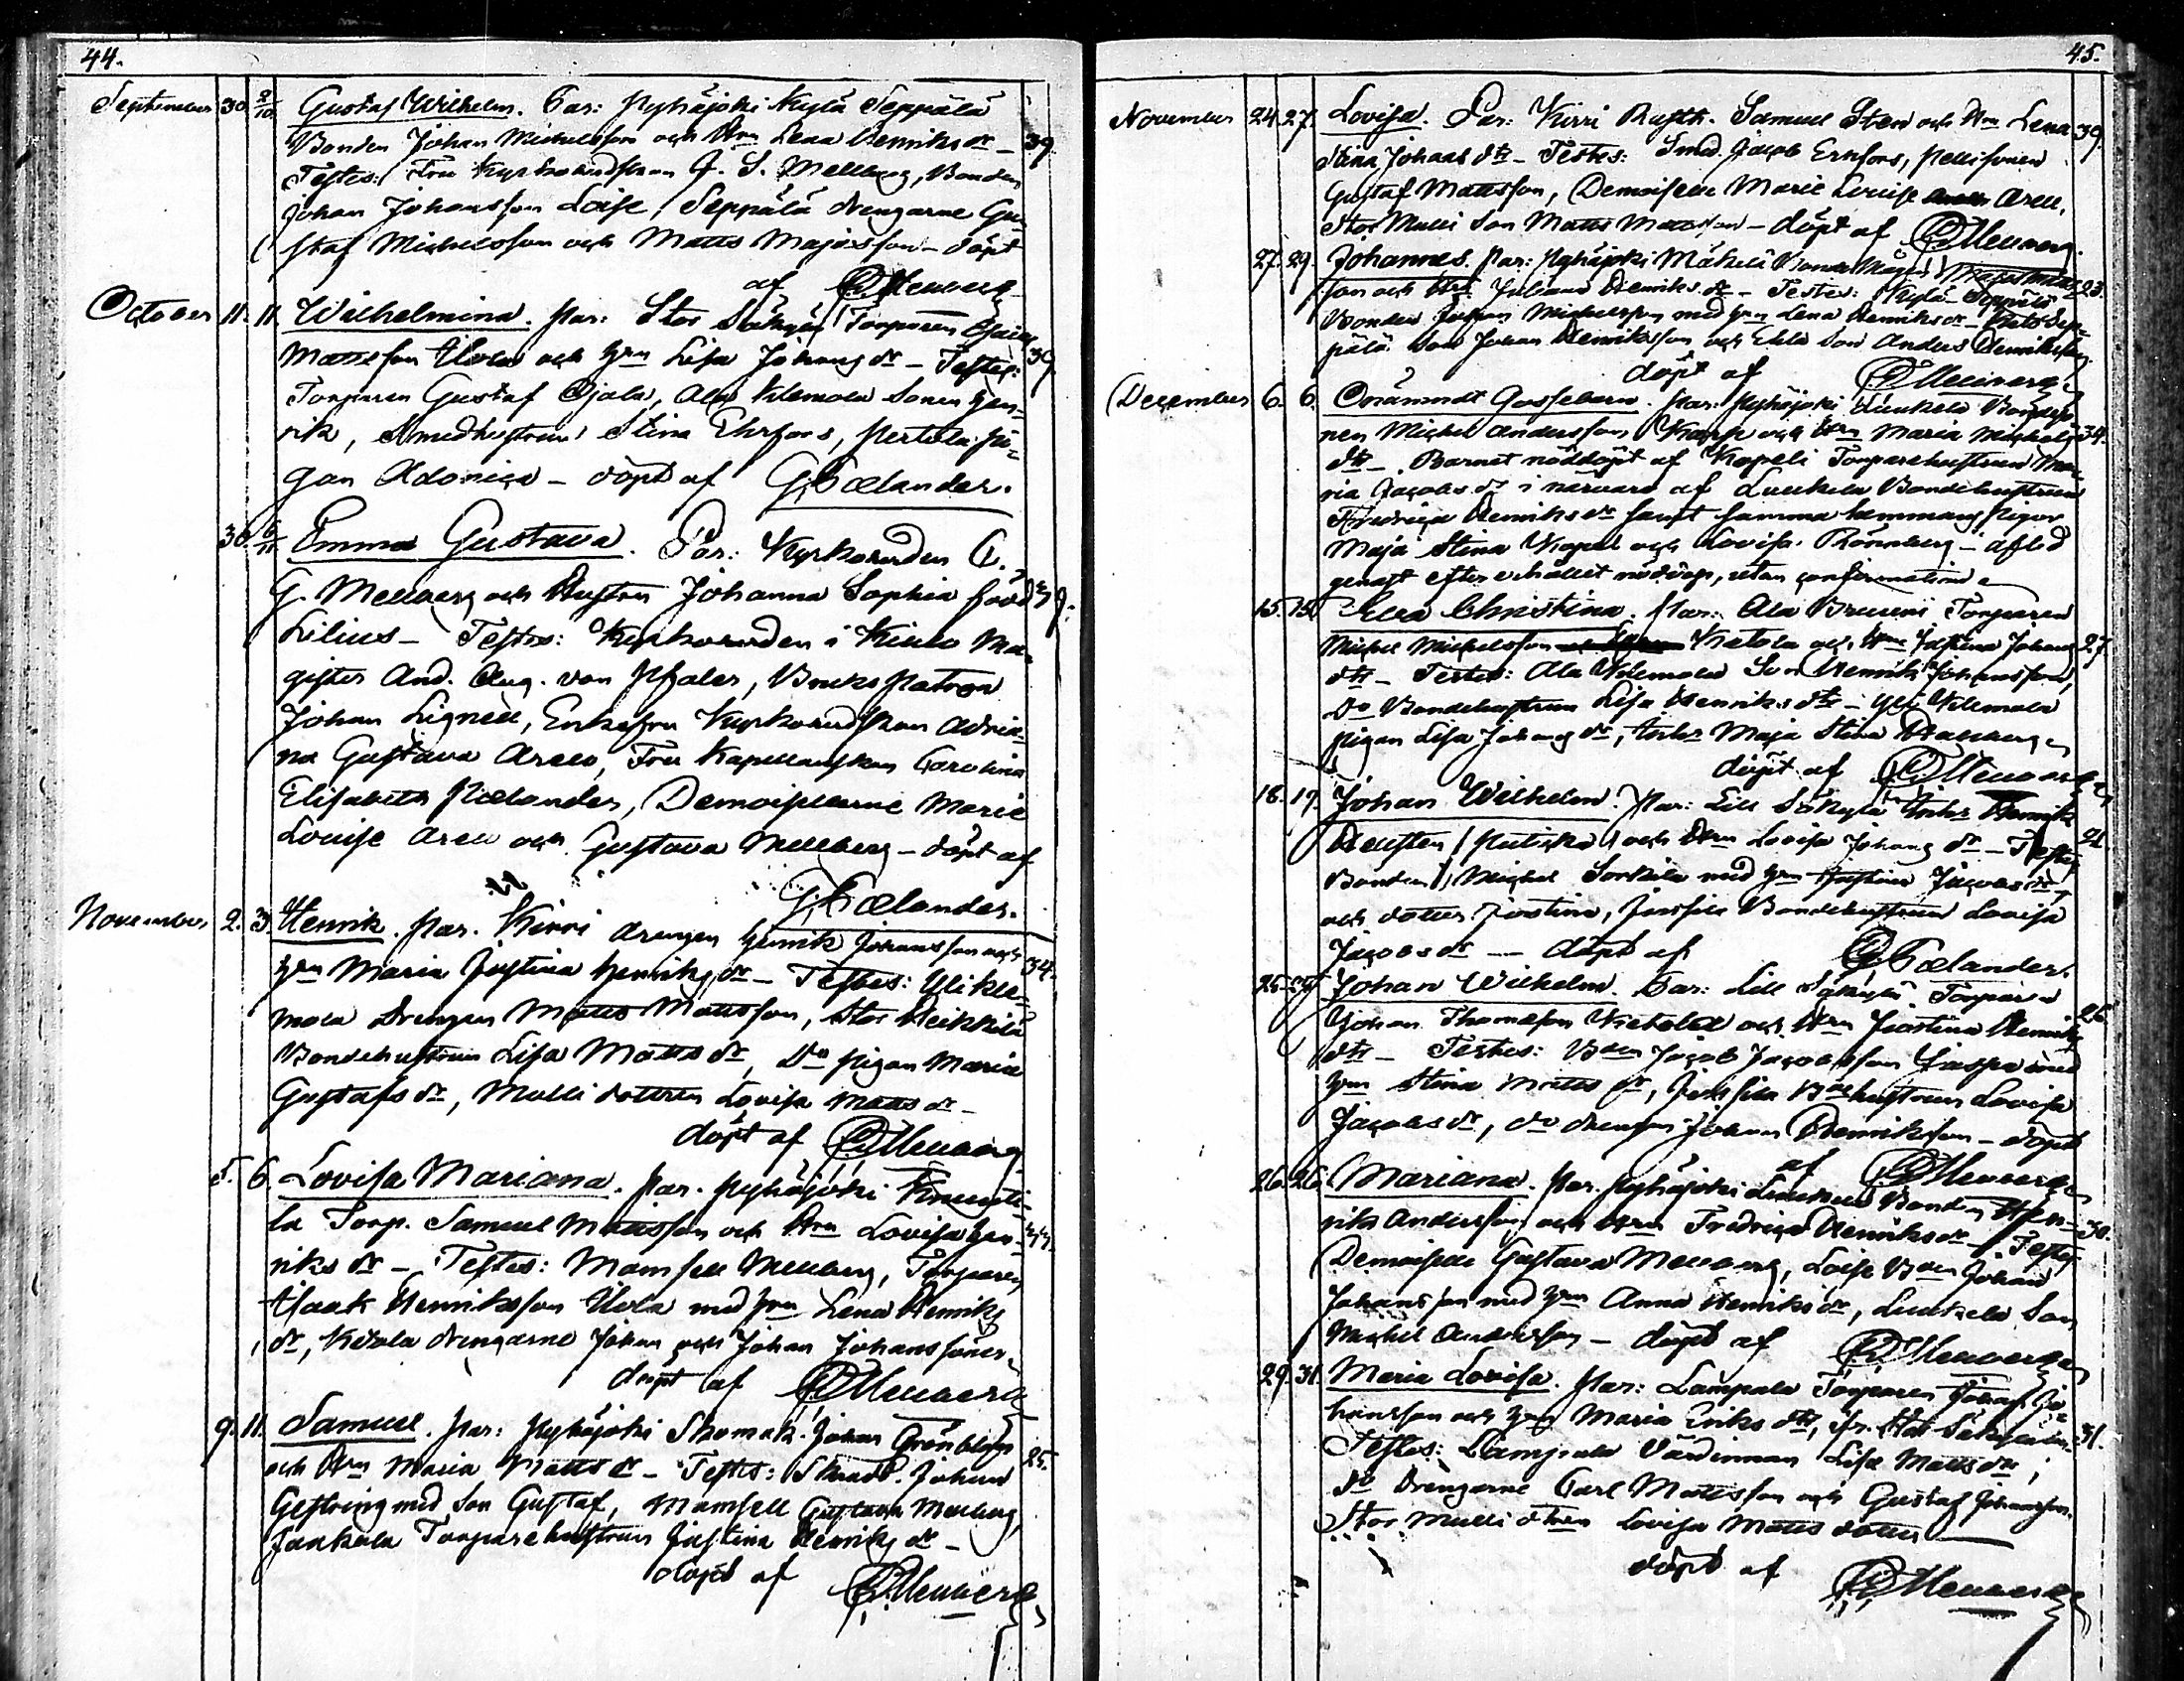 44.
September 30. 2/10. Gustaf Wilhelm. Par: Pyhäjoki Kylä Seppälä
Bonden Johan Michelsson och Hru Lena Henriks dr — 39.
Testes: Fru Kyrkoherdskan J. S. Mellberg, Bonden
Johan Johansson Loise, Seppälä drengarne Gu-
staf Michelsson och Matts Majasson — döpt
af Mellberg
October 11. 11. Wilhelmina. Par: Stor Säkylä Torparen
Mattsson Uola och hru Lisa Johans dr — Testes: 39.
Torparen Gustaf Ojala, Ala Kilemola Sonen Hen-
rik, Smedhustrun Stina Ehrfors, Pertola pi-
gan Adoniça — döpt af G. Pælander.
30. 6/11 Emma Gustava. Par: Kyrkoherden C.
G. Mellberg och Hustru Johanna Sophia född
Lilius — Testes: Kyrkoherden i Kiulo Ma-
gister And. Aug. von Pfaler, Bruks Patron
Johan Lignell, Enkefru Kyrkoherdskan Adria-
na Gustava Arell, Fru Kapellanskan Carolina
Elisabeth Pælander, Demoisellerne Marie
Louise Arell och Gustava Mellberg — döpt af
G. Pælander.
November 2. 3. Henrik. Par. Kirri drengen Henrik Johansson och
hru Maria Justina Henriks dr — Testes: Yli Kile- 34.
mola Drengen Matts Mattsson, Stor Heikkilä
Bondehustrun Lisa Matts dr, Do pigan Maria
Gustafs dr, Mulli dottren Lovisa Matts dr —
döpt af Mellberg
5. 6. Lovisa Mariana. Par. Pyhäjoki
la Torp. Samuel Mattsson och Hru Lovisa Hen-
riks dr — Testes: Mamsell Mellberg, Torparen
Isaak Henriksson Uola med hru Lena Henriks
dr, Ketola drengarne Johan och Johan Johanssöner
döpt af Mellberg
9. 11. Samuel. Par: Pyhäjoki Skomak. Johan Grönblom
och Hru Maria Matts dr — Testes: Johan 25.
Gestring med Son Gustaf, Mamsell Gustava Mellberg,
Jaakola Torparehustrun Justina Henriks dr —
döpt af Mellberg
45.
November 24. 27. Lovisa. Par: Kirri Rusth. Samuel Sten och Hru Lena 39.
Stina Johans dtr — Testes: Smed. Jacob Ernfors,
Gustaf Mattsson, Demoiselle Marie Louise Arell,
Stor Mulli Son Matts Mattsson — döpt af Mellberg.
27. 29. Johannes. Par: Pyhäjoki Mäkelä Bonde Mågen 23.
son och Hru Juliana Henriks dr — Testes: Kylä Seppälä
Bonden Johan Michelsson med hru Lena Henriks dr —
pälä Son Johan Henriksson och Son Anders Henriksson
döpt af Mellberg
December 6. 6. Onämndt Gossebarn. Par: Pyhäjoki Luukela Bondeso-
nen Michel Andersson Karp och Hru Maria Michels 34.
dtr — Barnet nöddöpt af Kapeli Torparehustrun Ma-
ria Jacobs dr i närvaro af Luukela Bondehustrun
Fredrica Henriks dr samt samma hemmans pigor
Maja Stina Kapel och Lovisa Rönnberg — afled
genast efter erhållet nöddop, utan confirmation
15. 15. Eva Christina. Par: Ala Torparen
Michel Michelsson Ketola och Hru Justina Johans 27.
dtr — Testes: Ala Kilemola Son Henrik Johansson,
Do Bondehustrun Lisa Henriks dtr — Yli Kilemola
pigan Lisa Johans dr, Inhr Maja Stina
döpt af Mellberg
18. 19. Johan Wilhelm. Par: Lill Säkylä Inhr Henrik
och Hru Lovisa Johans dr — Testes
Bonden Michel Sorkila med hru Justina Jacobs dr,
och dotter Justina, Bondehustrun Lovisa
Jacobs dr — döpt af G. Pælander.
25. Johan Wilhelm. Par: Lill Säkylä Torparen
Johan Thomasson Ketola och Hru Justina Henriks 26.
dtr — Testes: Jacob Jacobsson med
hru Stina Matts dr, hustrun Lovisa
Jacobs dr, do drengen Johan Henriksson — döpt
af Mellberg
26. 26. Mariana. Par. Pyhäjoki Luukela Bonden Hen-
rik Andersson och Hru Fredrica Henriks dr — Testes 30.
Demoiselle Gustava Mellberg, Loise Johan
Johansson med hru Anna Henriks dr, Luukela Son
Michel Andersson — döpt af Mellberg
29. 31. Maria Lovisa. Par: Lampala Torparen Johan Jo-
hansson och hru Maria Eriks dtr, Stor Säkylä 31.
Testes: Lampala Värdinnan Lisa Matts dtr,
do Drengarne Carl Mattsson och Gustaf Johansson,
Stor Mulli Lovisa Matts dotter
döpt af Mellberg